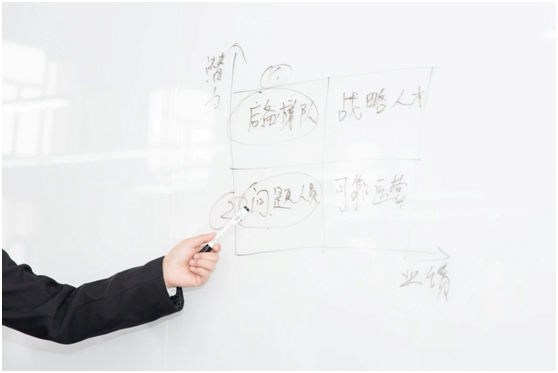 潜力
①
后备梯队 战略人才
② 问题人员 可靠运营
业绩